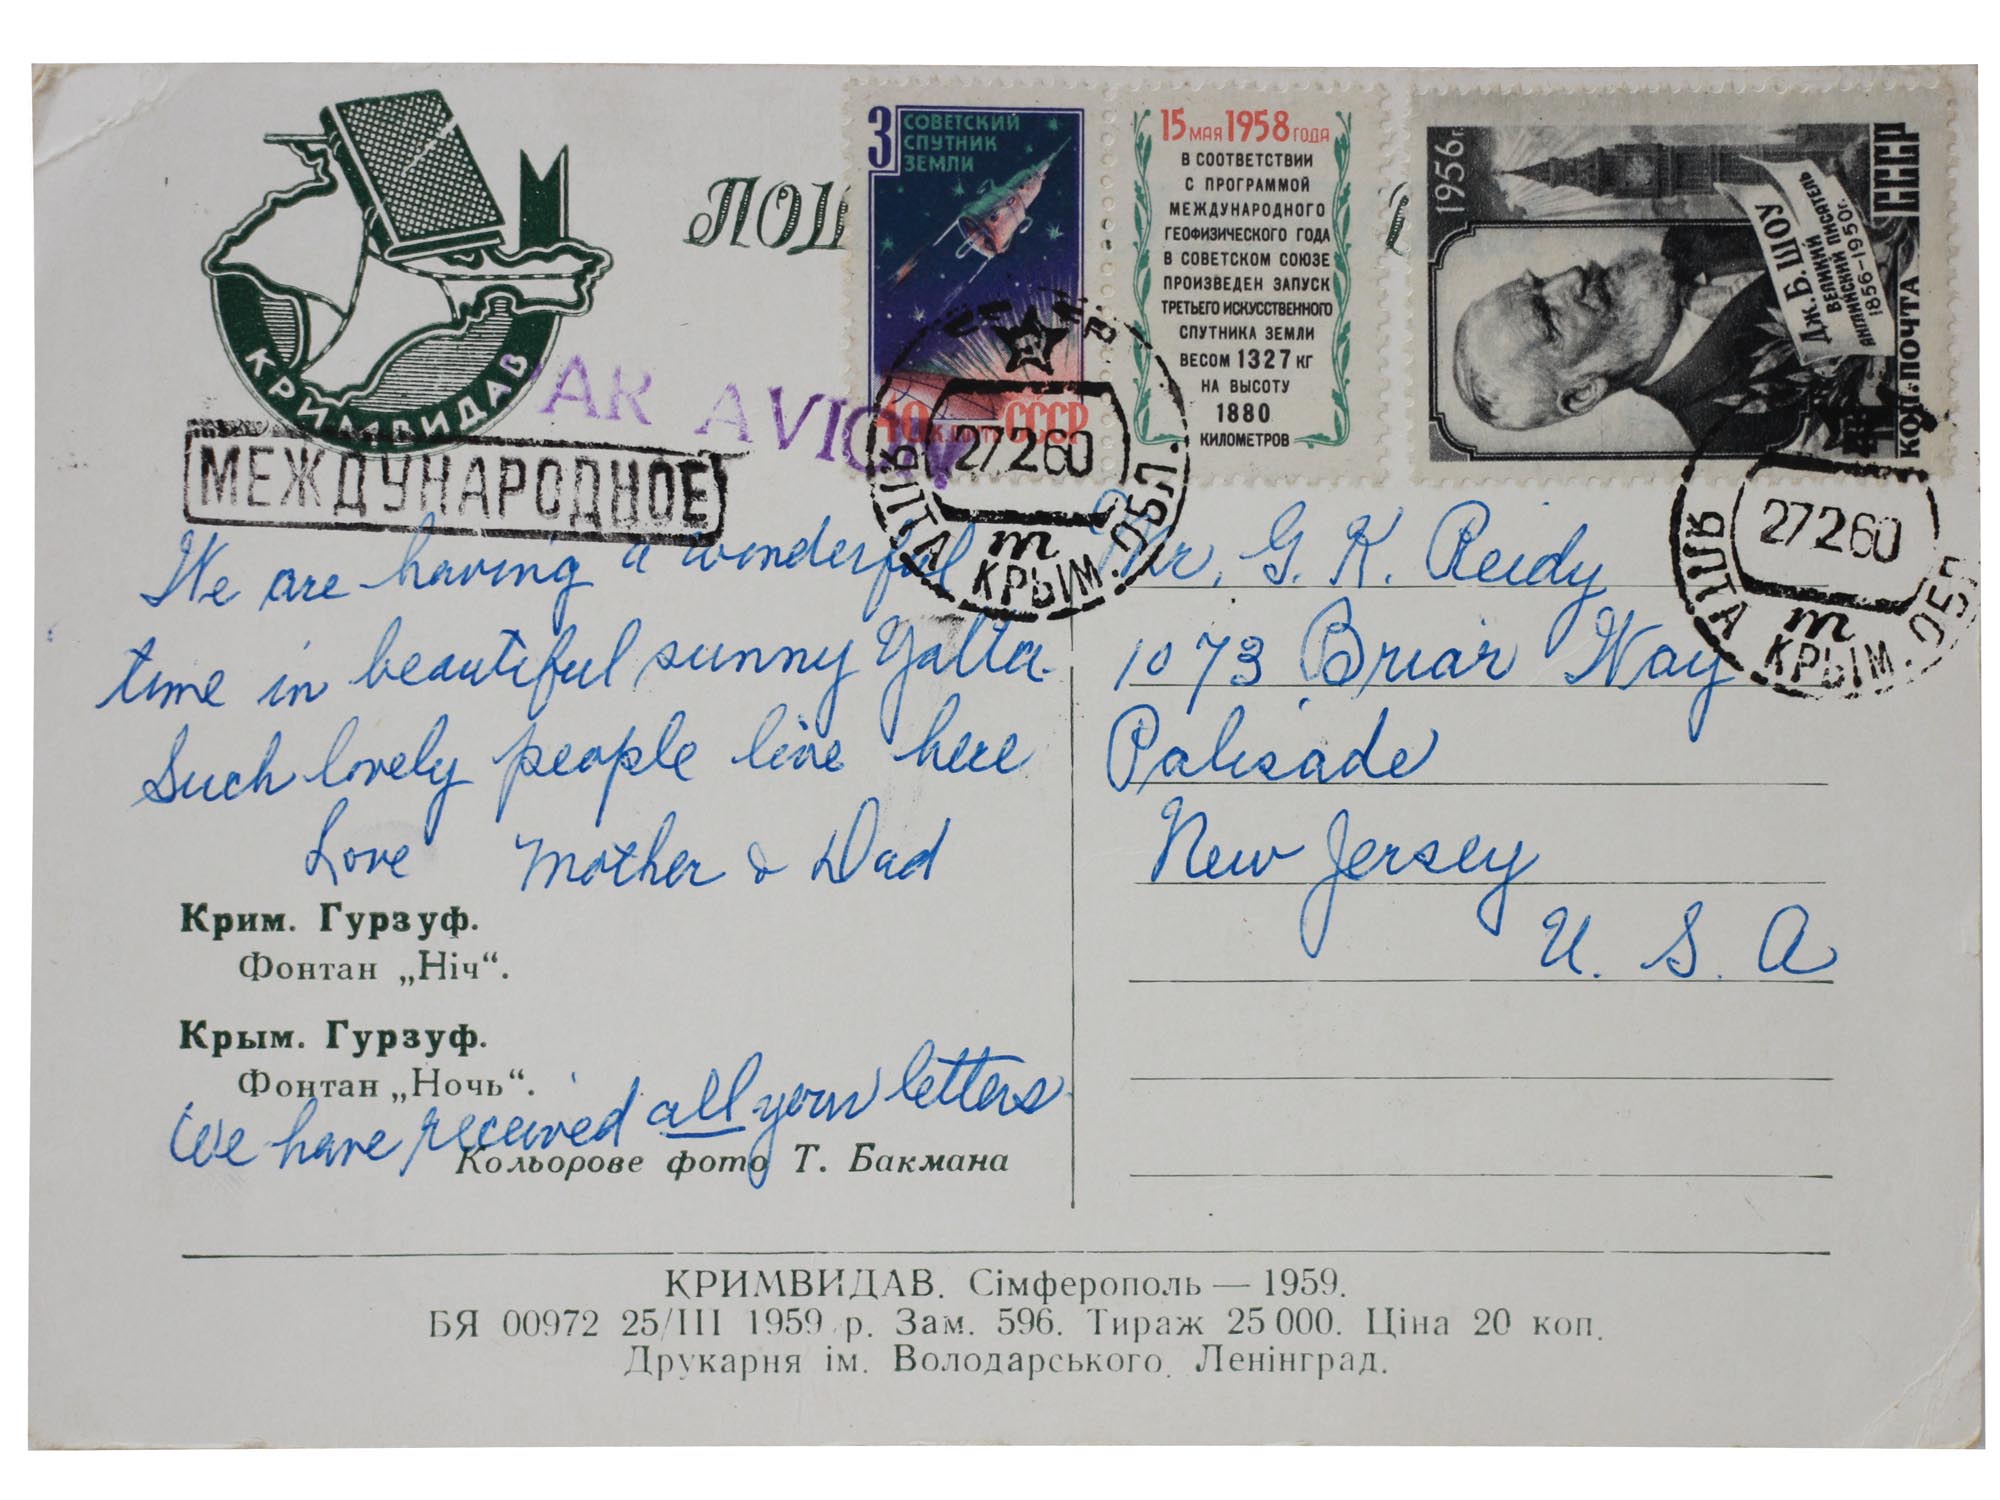 КРИМВИДАВ
ПОШ
PAR AVION
МЕЖДУНАРОДНОЕ
3 СОВЕТСКИЙ
СПУТНИК
ЗЕМЛИ
40 СССР
15 МАЯ 1958 ГОДА
В СООТВЕТСТВИИ
С ПРОГРАММОЙ
МЕЖДУНАРОДНОГО
ГЕОФИЗИЧЕСКОГО ГОДА
В СОВЕТСКОМ СОЮЗЕ
ПРОИЗВЕДЕН ЗАПУСК
ТРЕТЬЕГО ИСКУССТВЕННОГО
СПУТНИКА ЗЕМЛИ
ВЕСОМ 1327 КГ
НА ВЫСОТУ
1880
КИЛОМЕТРОВ
1956г.
ДЖ. Б. ШОУ
ВЕЛИКИЙ
АНГЛИЙСКИЙ ПИСАТЕЛЬ
1856–1950г.
СССР
ПОЧТА
27 2 60
т
ЯЛТА КРЫМ. ОБЛ.
27 2 60
т
ЯЛТА КРЫМ. ОБЛ
We are having a wonderful
time in beautiful sunny Yalta.
Such lovely people live here
Love Mother & Dad
Крим. Гурзуф.
Фонтан „Ніч“.
Крым. Гурзуф.
Фонтан „Ночь“.
We have received all your letters
Кольорове фото Т. Бакмана
Mr. G. K. Reidy
1073 Briar Way
Palisade
New Jersey
U. S. A
КРИМВИДАВ. Сімферополь — 1959.
БЯ 00972 25/III 1959 р. Зам. 596. Тираж 25 000. Ціна 20 коп.
Друкарня ім. Володарського. Ленінград.